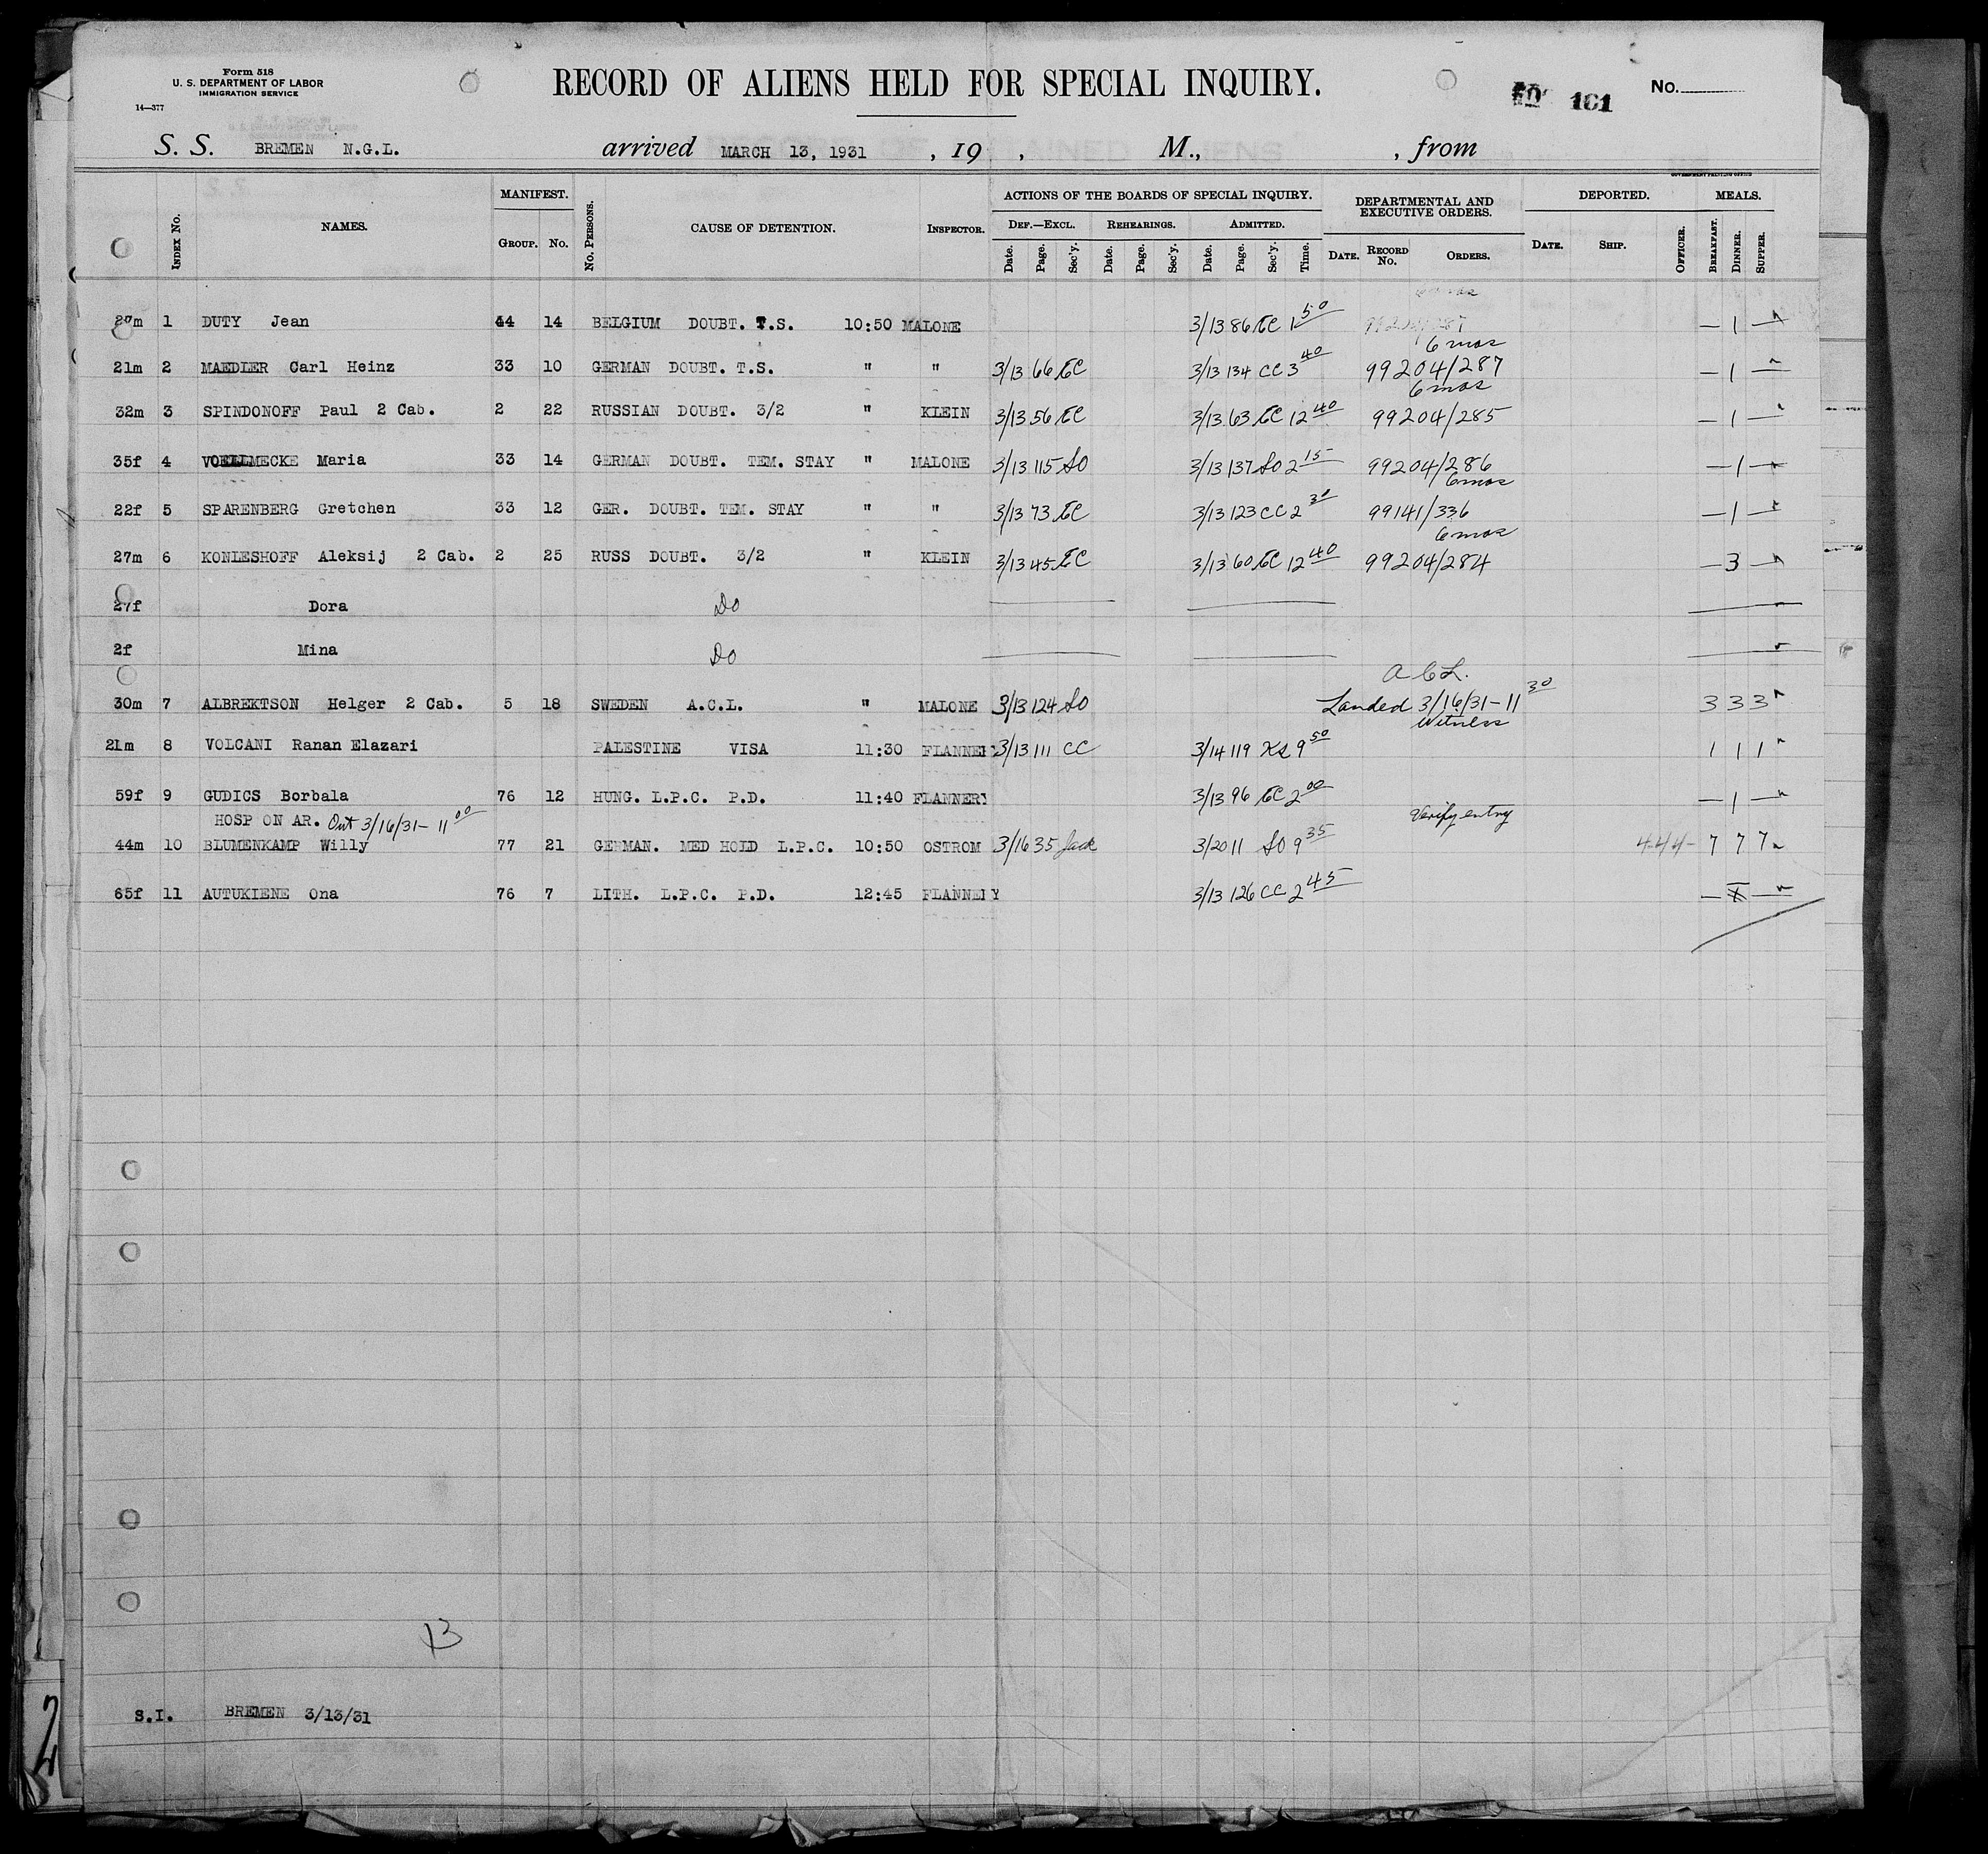 Form 518
U. S. DEPARTMENT OF LABOR
IMMIGRATION SERVICE
14—377
RECORD OF ALIENS HELD FOR SPECIAL INQUIRY.
161
No.
S. S. BREMEN N.G.L. arrived MARCH 13, 1931 , 19 , M., , from
GOVERNMENT PRINTING OFFICE
INDEX No. NAMES. MANIFEST. GROUP. No. No. PERSONS. CAUSE OF DETENTION. INSPECTOR. ACTIONS OF THE BOARDS OF SPECIAL INQUIRY. DEPARTMENTAL AND EXECUTIVE ORDERS. DEPORTED. MEALS.
DEF.—EXCL. REHEARINGS. ADMITTED.
Date. Page. Sec'y. Date. Page. Sec'y. Date. Page. Sec'y. Time. DATE. RECORD No. ORDERS. DATE. SHIP. OFFICER. BREAKFAST. DINNER. SUPPER.
27m 1 DUTY Jean 44 14 BELGIUM DOUBT. T.S. 10:50 MALONE 3/13 86 EC 1 50 — 1 —
6 mos
21m 2 MAEDLER Carl Heinz 33 10 GERMAN DOUBT. T.S. " " 3/13 66 EC 3/13 134 CC 3 40 99204/287 — 1 —
6 mos
32m 3 SPINDONOFF Paul 2 Cab. 2 22 RUSSIAN DOUBT. 3/2 " KLEIN 3/13 56 EC 3/13 63 EC 12 40 99204/285 — 1 —
35f 4 VOELLMECKE Maria 33 14 GERMAN DOUBT. TEM. STAY " MALONE 3/13 115 SO 3/13 137 SO 2 15 99204/286 — 1 —
6 mos
22f 5 SPARENBERG Gretchen 33 12 GER. DOUBT. TEM. STAY " " 3/13 73 EC 3/13 123 CC 2 30 99141/336 — 1 —
6 mos
27m 6 KONLESHOFF Aleksij 2 Cab. 2 25 RUSS DOUBT. 3/2 " KLEIN 3/13 45 EC 3/13 60 EC 12 40 99204/284 — 3 —
27f Dora Do
2f Mina Do
A C L.
30m 7 ALBREKTSON Helger 2 Cab. 5 18 SWEDEN A.C.L. " MALONE 3/13 124 SO Landed 3/16/31 - 11 30 3 3 3
Witness
21m 8 VOLCANI Ranan Elazari PALESTINE VISA 11:30 FLANNERY 3/13 111 CC 3/14 119 KS 9 50 1 1 1
59f 9 GUDICS Borbala 76 12 HUNG. L.P.C. P.D. 11:40 FLANNERY 3/13 96 EC 2 00 — 1 —
HOSP ON AR. Out 3/16/31 - 11 00 Verify entry
44m 10 BLUMENKAMP Willy 77 21 GERMAN. MED HOLD L.P.C. 10:50 OSTROM 3/16 35 Jack 3/20 11 SO 9 35 4-4-4- 7 7 7
65f 11 AUTUKIENE Ona 76 7 LITH. L.P.C. P.D. 12:45 FLANNERY 3/13 126 CC 2 45
13
S.I. BREMEN 3/13/31